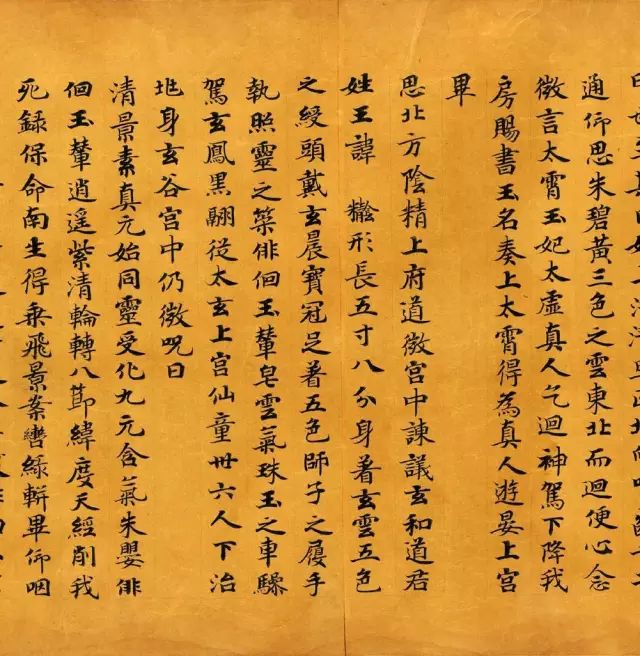 通仰思朱碧黃三色之雲東北而迴便心念
微言太霄玉妃太虛真人乞迴神駕下降我
房賜書玉名奏上太霄得為真人遊晏上宮
畢
思北方陰精上府道微宮中諫議玄和道君
姓王諱 形長五寸八分身著玄雲五色
之綬頭戴玄晨寶冠足著五色師子之履手
執照靈之築俳佪玉輦皂雲氣珠玉之車驂
駕玄鳳黑翮從太玄上宮仙童卅六人下治
兆身玄谷宮中仍微咒曰
清景素真元始同靈受化九元含氣朱嬰俳
佪玉輦逍遥紫清輪轉八節緯度天經削我
死録保命南生得乗飛景案轡綠軿畢仰咽